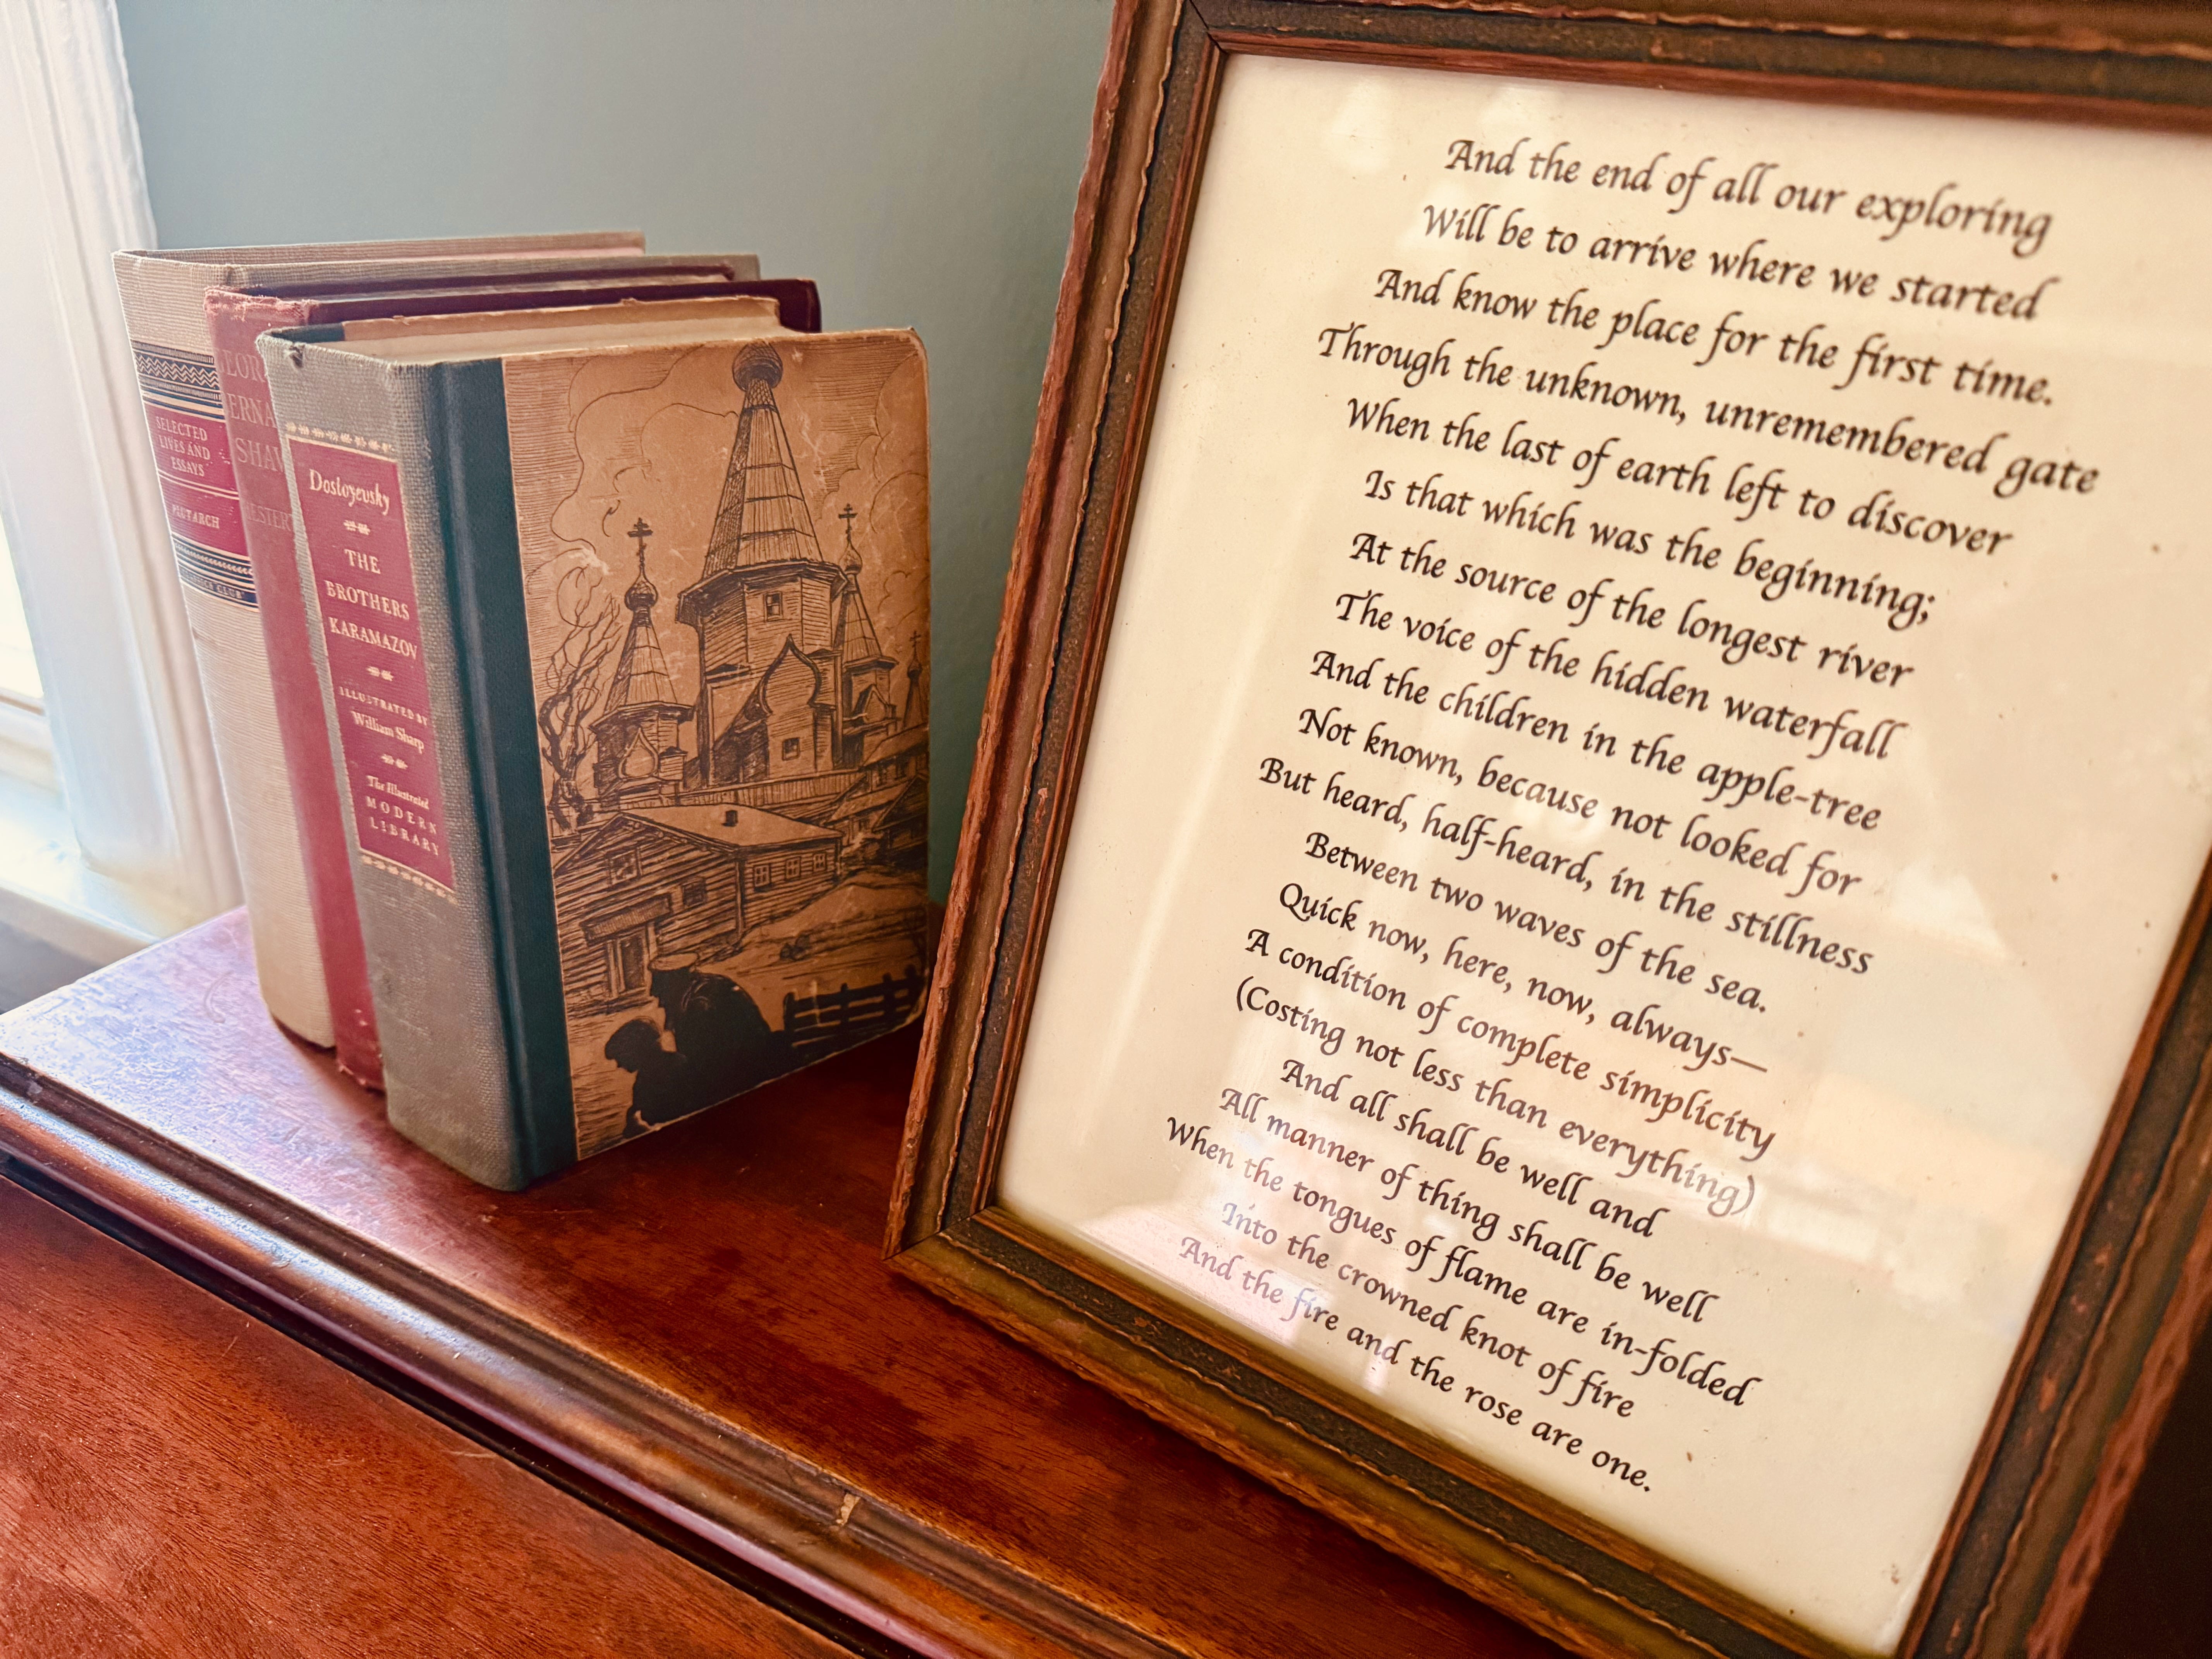 SELECTED
LIVES AND
ESSAYS
PLUTARCH
CLUB
SHAW
Dostoyevsky
THE
BROTHERS
KARAMAZOV
ILLUSTRATED BY
William Sharp
The Illustrated
MODERN
LIBRARY
And the end of all our exploring
Will be to arrive where we started
And know the place for the first time.
Through the unknown, unremembered gate
When the last of earth left to discover
Is that which was the beginning;
At the source of the longest river
The voice of the hidden waterfall
And the children in the apple-tree
Not known, because not looked for
But heard, half-heard, in the stillness
Between two waves of the sea.
Quick now, here, now, always—
A condition of complete simplicity
(Costing not less than everything)
And all shall be well and
All manner of thing shall be well
When the tongues of flame are in-folded
Into the crowned knot of fire
And the fire and the rose are one.